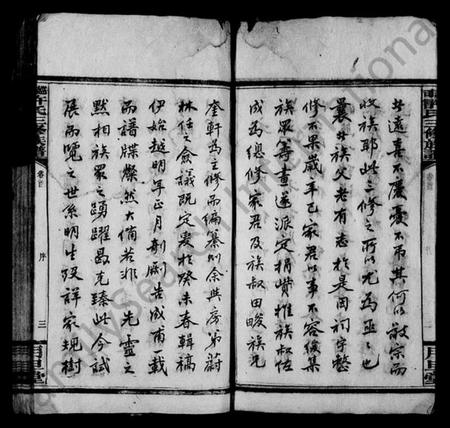 甘遠喜不慶憂不吊其何以敦宗而
收族耶此三修之所以尤為亟亟也
曩者族父老有志於是因祠宇整
修不果歲辛巳家君以事不容緩集
族眾籌畫遂派定捐貲推族叔佐
成為總修家君及族叔田畯族兄
奎軒為主修而編纂則余與房弟蔚
林任之僉議既定爰於癸未春輯稿
伊始越明年正月剞劂告成甫載
而譜牒燦然大備若非 先靈之
默相族眾之踴躍曷克臻此今試
展而覽之世系明生歿詳家規樹
許氏三修族譜
卷首
序
三